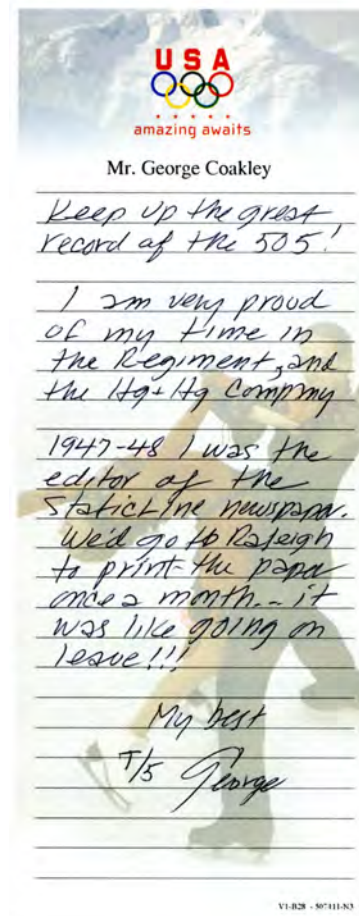 USA
amazing awaits
Mr. George Coakley
Keep up the great
record of the 505!
I am very proud
of my time in
the Regiment, and
the Hq + Hq Company
1947-48 I was the
editor of the
StaticLine newspaper.
We'd go to Raleigh
to print the paper
once a month -- it
was like going on
leave!!!
My best
T/5 George
V1-B28 - 507411-N3